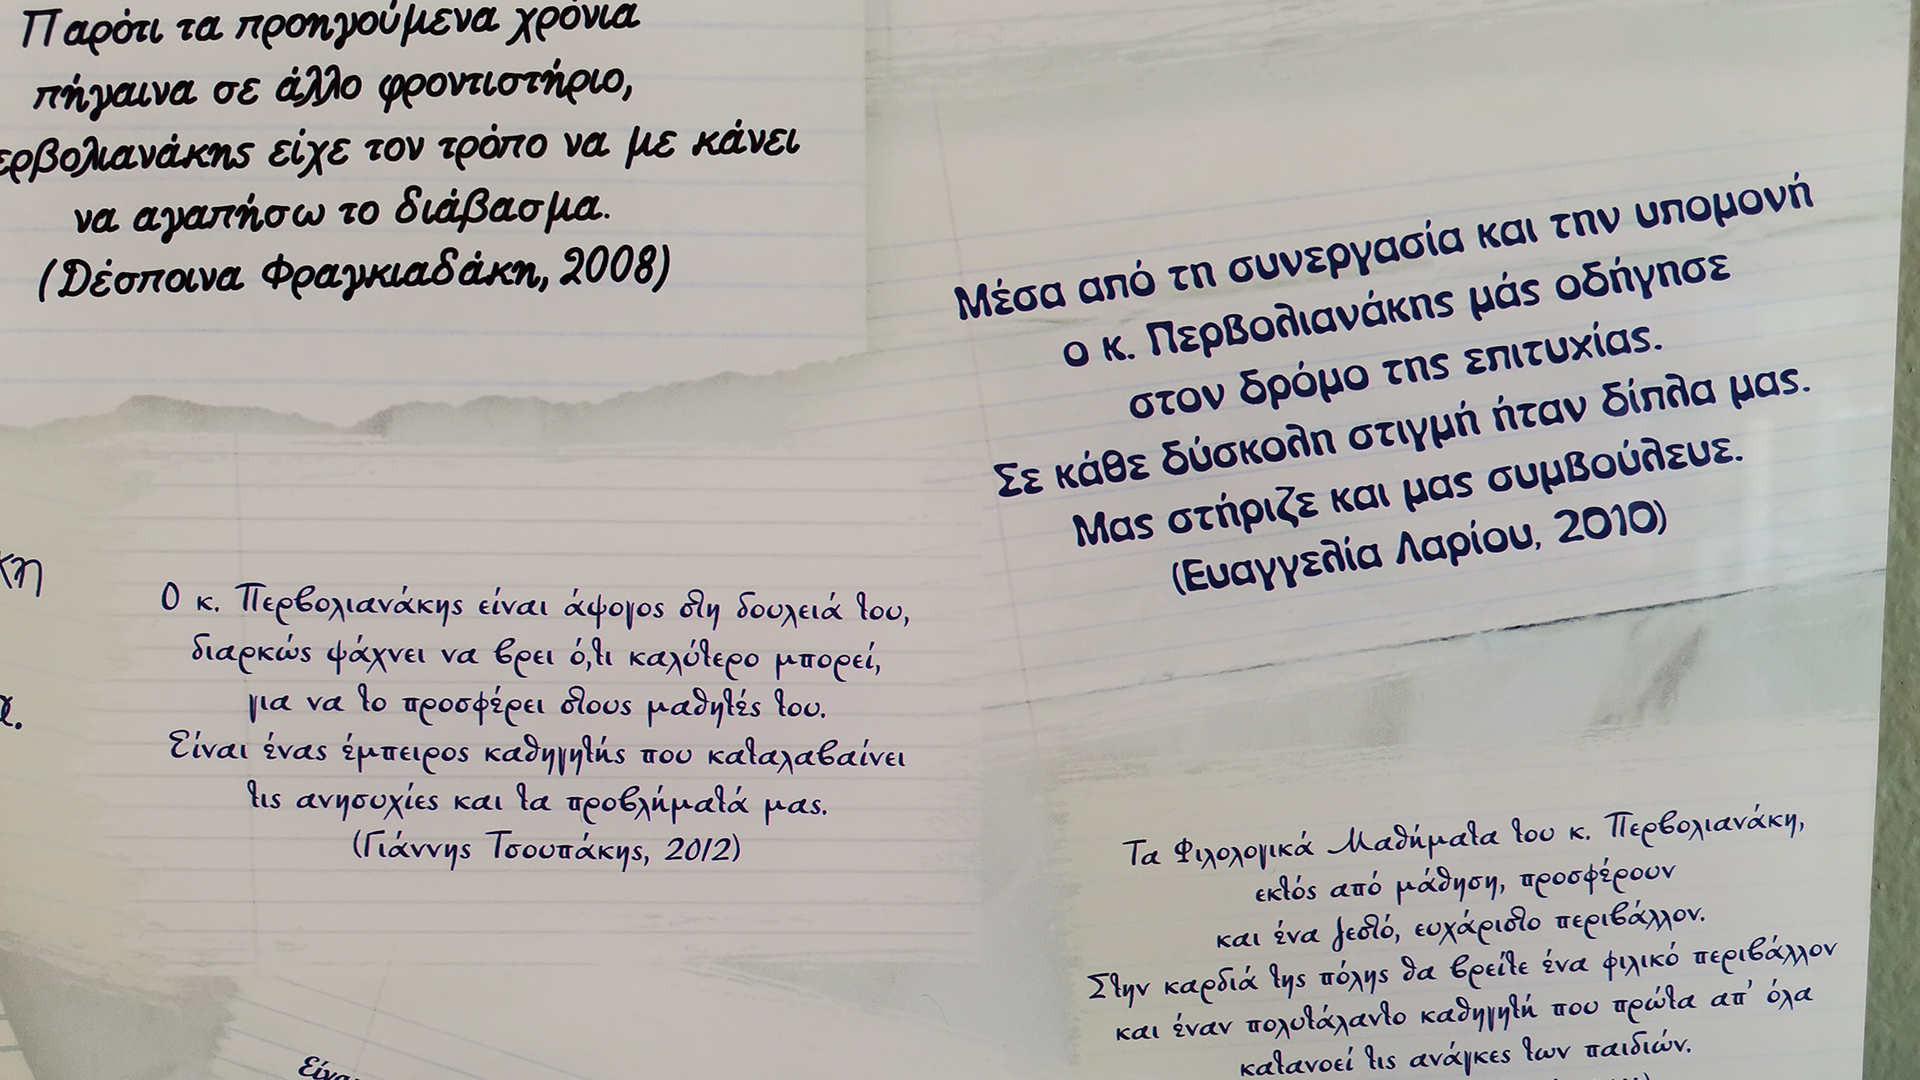 Παρότι τα προηγούμενα χρόνια
πήγαινα σε άλλο φροντιστήριο,
ερβολιανάκης είχε τον τρόπο να με κάνει
να αγαπήσω το διάβασμα.
(Δέσποινα Φραγκιαδάκη, 2008)
Μέσα από τη συνεργασία και την υπομονή
ο κ. Περβολιανάκης μάς οδήγησε
στον δρόμο της επιτυχίας.
Σε κάθε δύσκολη στιγμή ήταν δίπλα μας.
Μας στήριζε και μας συμβούλευε.
(Ευαγγελία Λαρίου, 2010)
κη
Ο κ. Περβολιανάκης είναι άψογος στη δουλειά του,
διαρκώς ψάχνει να βρει ό,τι καλύτερο μπορεί,
για να το προσφέρει στους μαθητές του.
Είναι ένας έμπειρος καθηγητής που καταλαβαίνει
τις ανησυχίες και τα προβλήματά μας.
(Γιάννης Τσουπάκης, 2012)
Τα Φιλολογικά Μαθήματα του κ. Περβολιανάκη,
εκτός από μάθηση, προσφέρουν
και ένα ζεστό, ευχάριστο περιβάλλον.
Στην καρδιά της πόλης θα βρείτε ένα φιλικό περιβάλλον
και έναν πολυτάλαντο καθηγητή που πρώτα απ' όλα
κατανοεί τις ανάγκες των παιδιών.